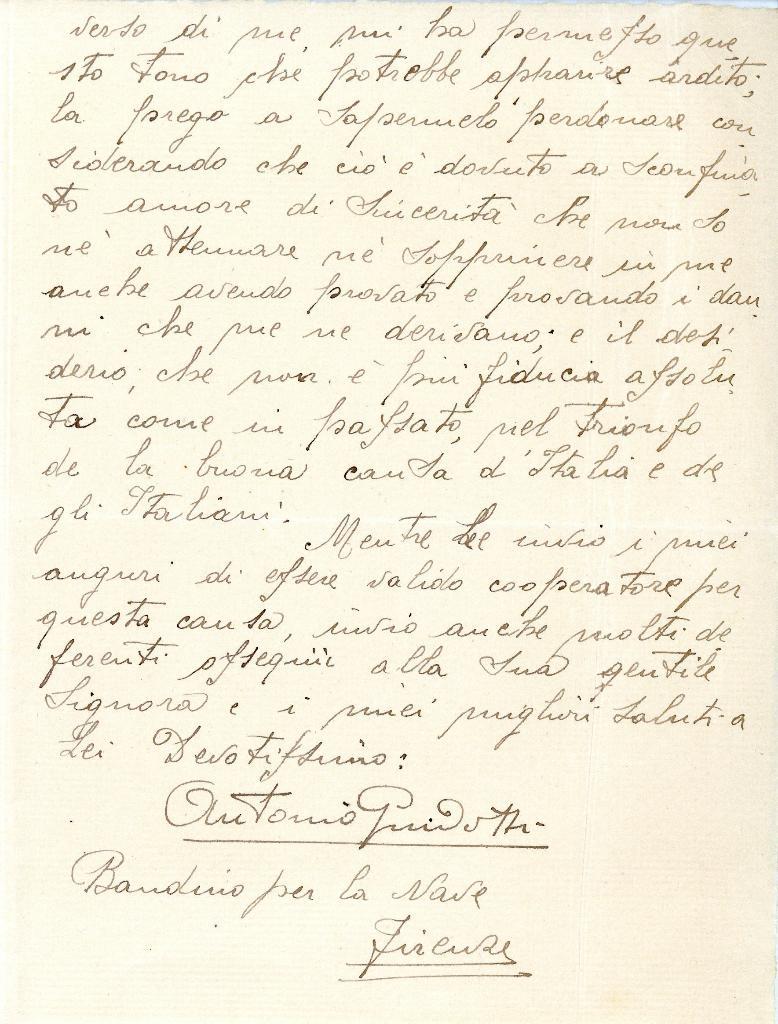 verso di me, mi ha permesso que
sto tono che potrebbe apparire ardito;
la prego a sapermelo perdonare con
siderando che ciò è dovuto a sconfina
to amore di sincerità che non so
nè attenuare nè sopprimere in me
anche avendo provato e provando i dan
ni che me ne derivano; e il desi
derio, che non è più fiducia assolu
ta come in passato, nel trionfo
de la buona causa d'Italia e de
gli Italiani.
Mentre Le invio i miei
auguri di essere valido cooperatore per
questa causa, invio anche molti de
ferenti ossequii alla sua gentile
Signora e i miei migliori saluti a
Lei Devotissimo:
Antonio Guidotti
Bandino per la Nave
Firenze